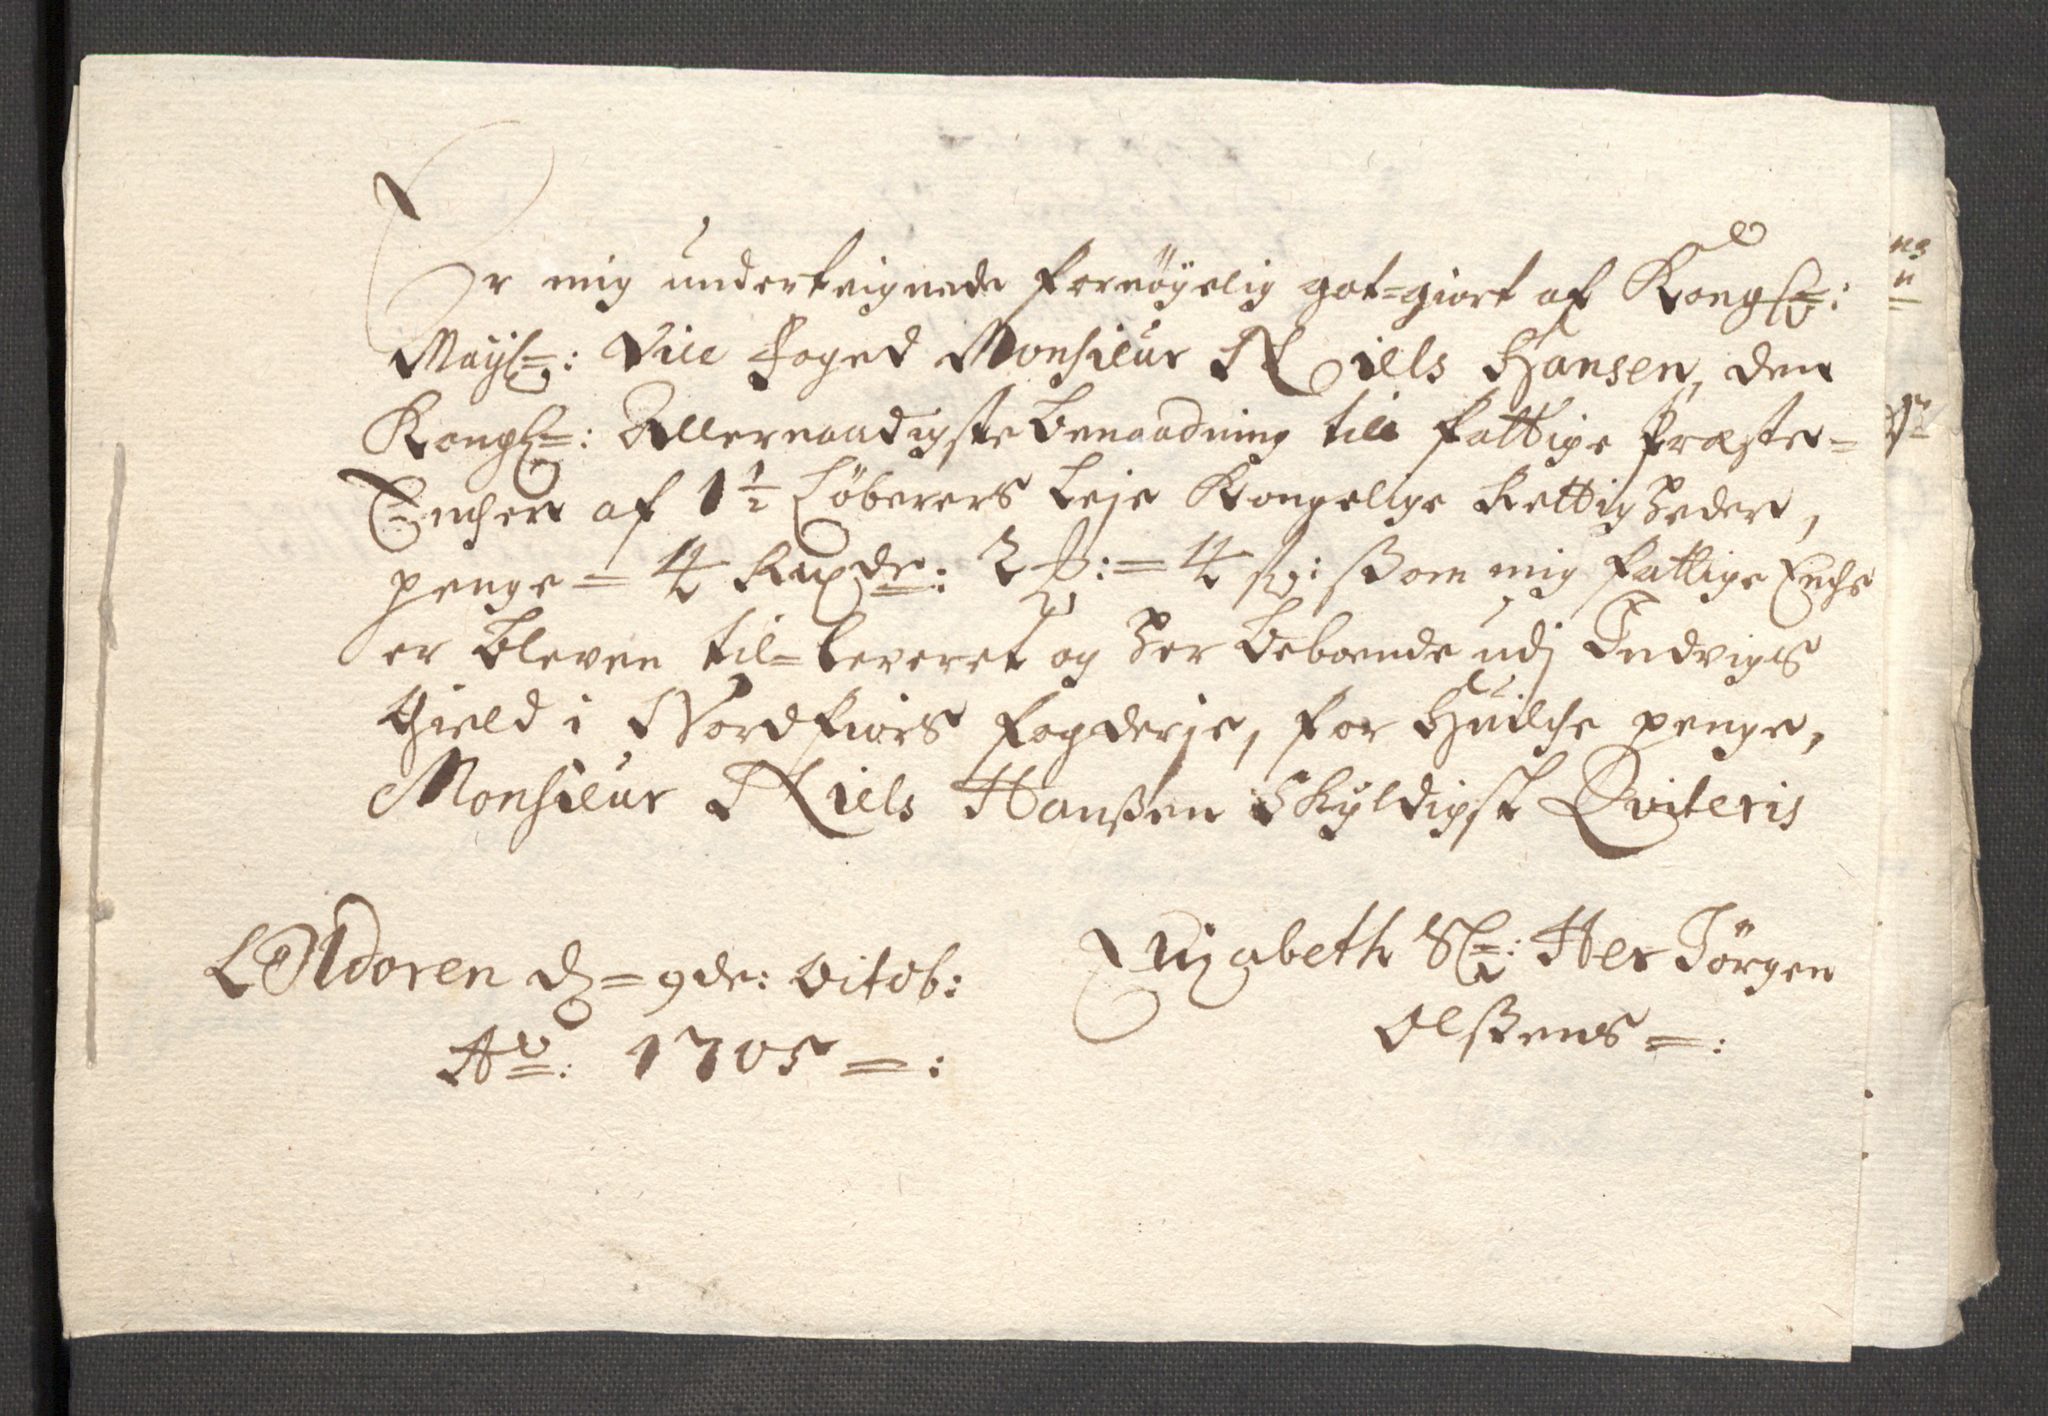 Er mig underteignede fornöyelig got=giort af Kongl:
Mayts: Vice Foged Monsieur Niels Hansen, den
Kongl: Allernaadigste benaadning till fattige Præste=
Encher af 1½ Löberers Leje Kongelige Rettigheder,
penge = 4 Rixdr: 2 ₰: = 4 ß: ßom mig fattige Enche
er bleven til=leveret og her beboende udj Indvigs
Gield i Nordfiors fogderje, for huilche penge,
Monsieur Niels Hanßen Skyldigst Qviteris
Oldoren d = 9de: Octob:
Ao: 1705 =:
Elizabeth Sl: Her Jörgen
Olßens =: